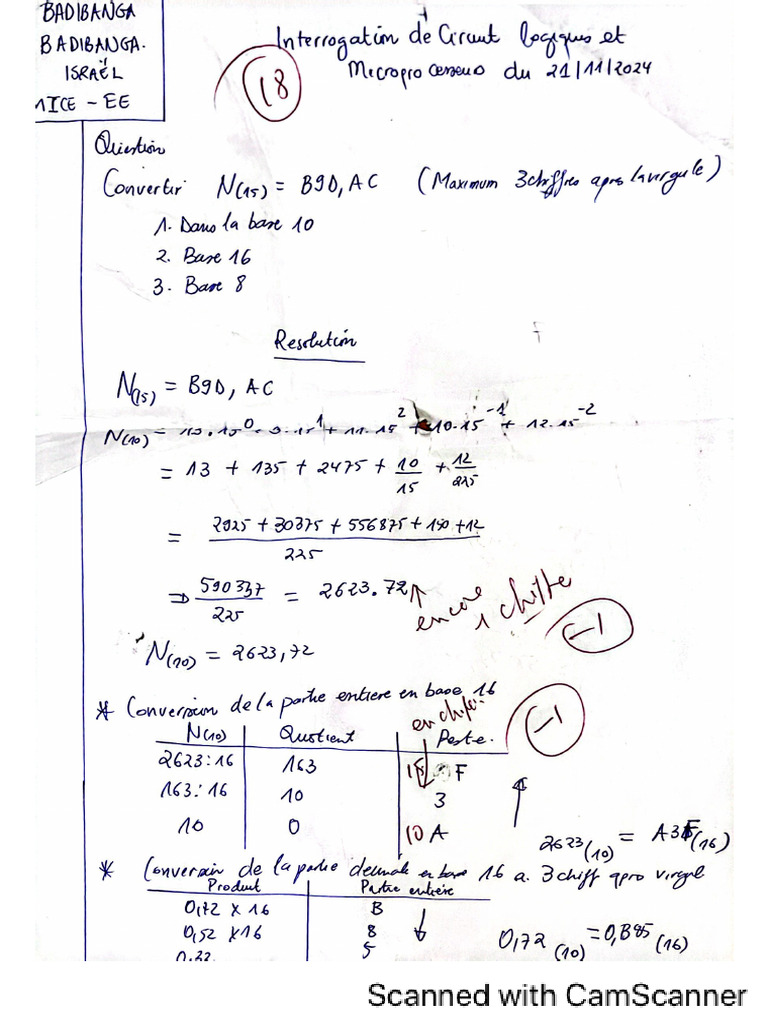 BADIBANGA
BADIBANGA.
ISRAËL
MICE - EE
Interrogation de Circuit logiques et
Microprocesseurs du 21/11/2024
18
Question
Convertir N(15) = B9D, AC (Maximum 3 chiffres apres la virgule)
1. Dans la base 10
2. Base 16
3. Base 8
Resolution
N(15) = B9D, AC
N(10) = 13.15^0 + 9.15^1 + 11.15^2 + 10.15^-1 + 12.15^-2
= 13 + 135 + 2475 + 10/15 + 12/225
= 2925 + 30375 + 556875 + 150 + 12 / 225
⇒ 590337/225 = 2623.72
encore 1 chiffre
-1
N(10) = 2623,72
* Conversion de la partie entiere en base 16
en chiffre
-1
N(10) | Quotient | Reste.
2623:16 | 163 | 15 F
163:16 | 10 | 3
10 | 0 | 10 A
2623(10) = A3F(16)
* Conversion de la partie decimale en base 16 a. 3 chiff apro virgul
Produit | Partie entière
0,72 x 16 | B
0,52 x 16 | 8
0,32 | 5
0,72(10) = 0,B85(16)
Scanned with CamScanner